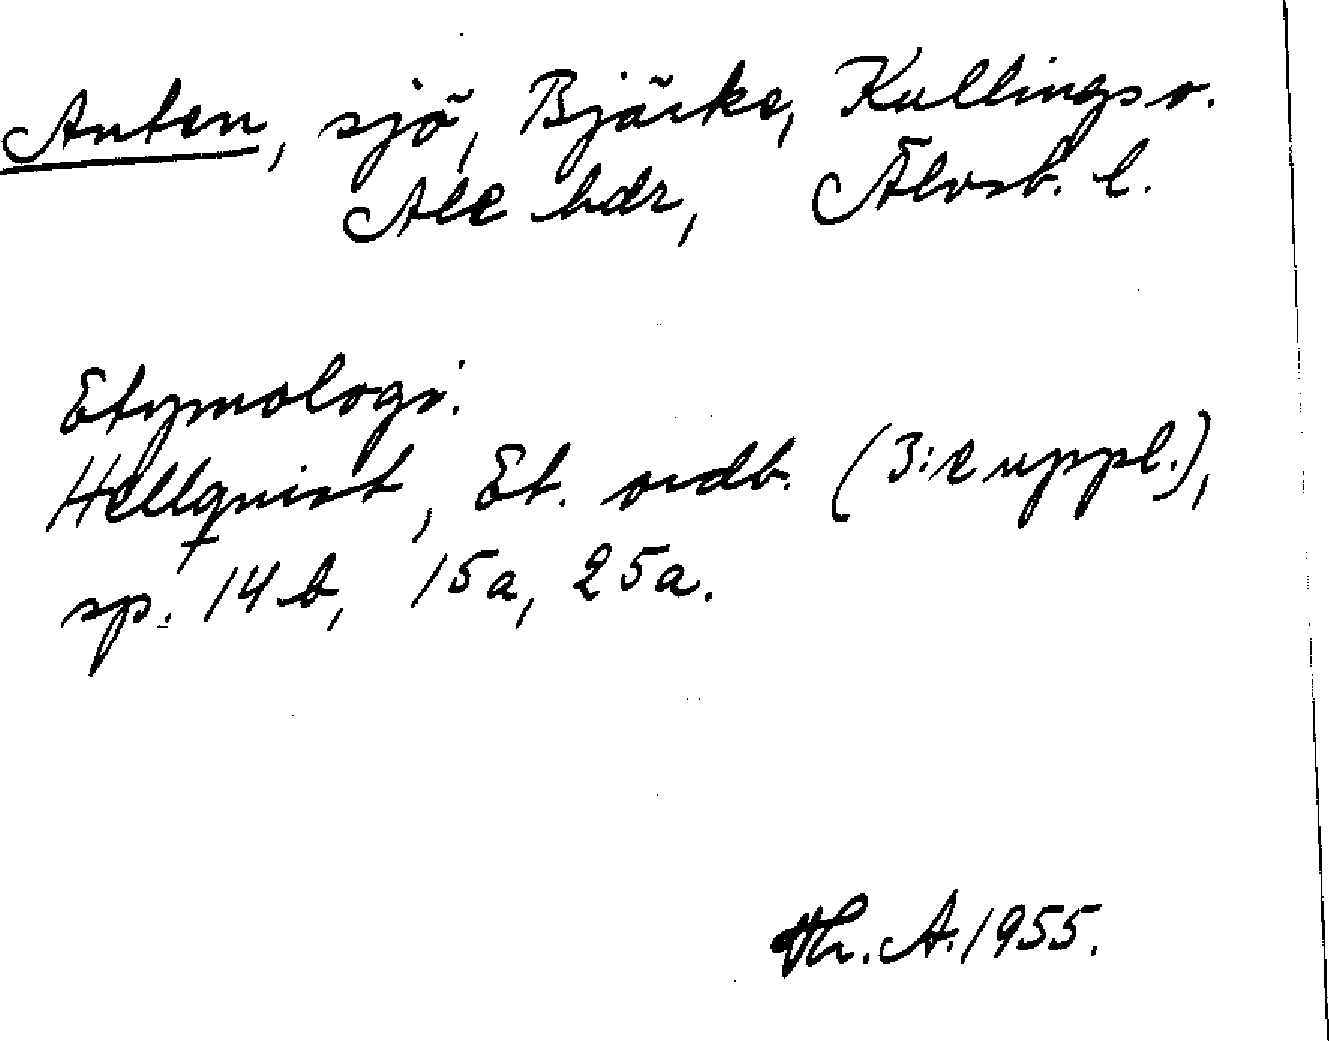 Anten, sjö, Bjärke, Kullings o.
Ale hdr, Älvsb. l.
Etymologi.
Hellquist, Et. ordb. (3:e uppl.),
sp. 14 b, 15 a, 25 a.
Th. A. 1955.